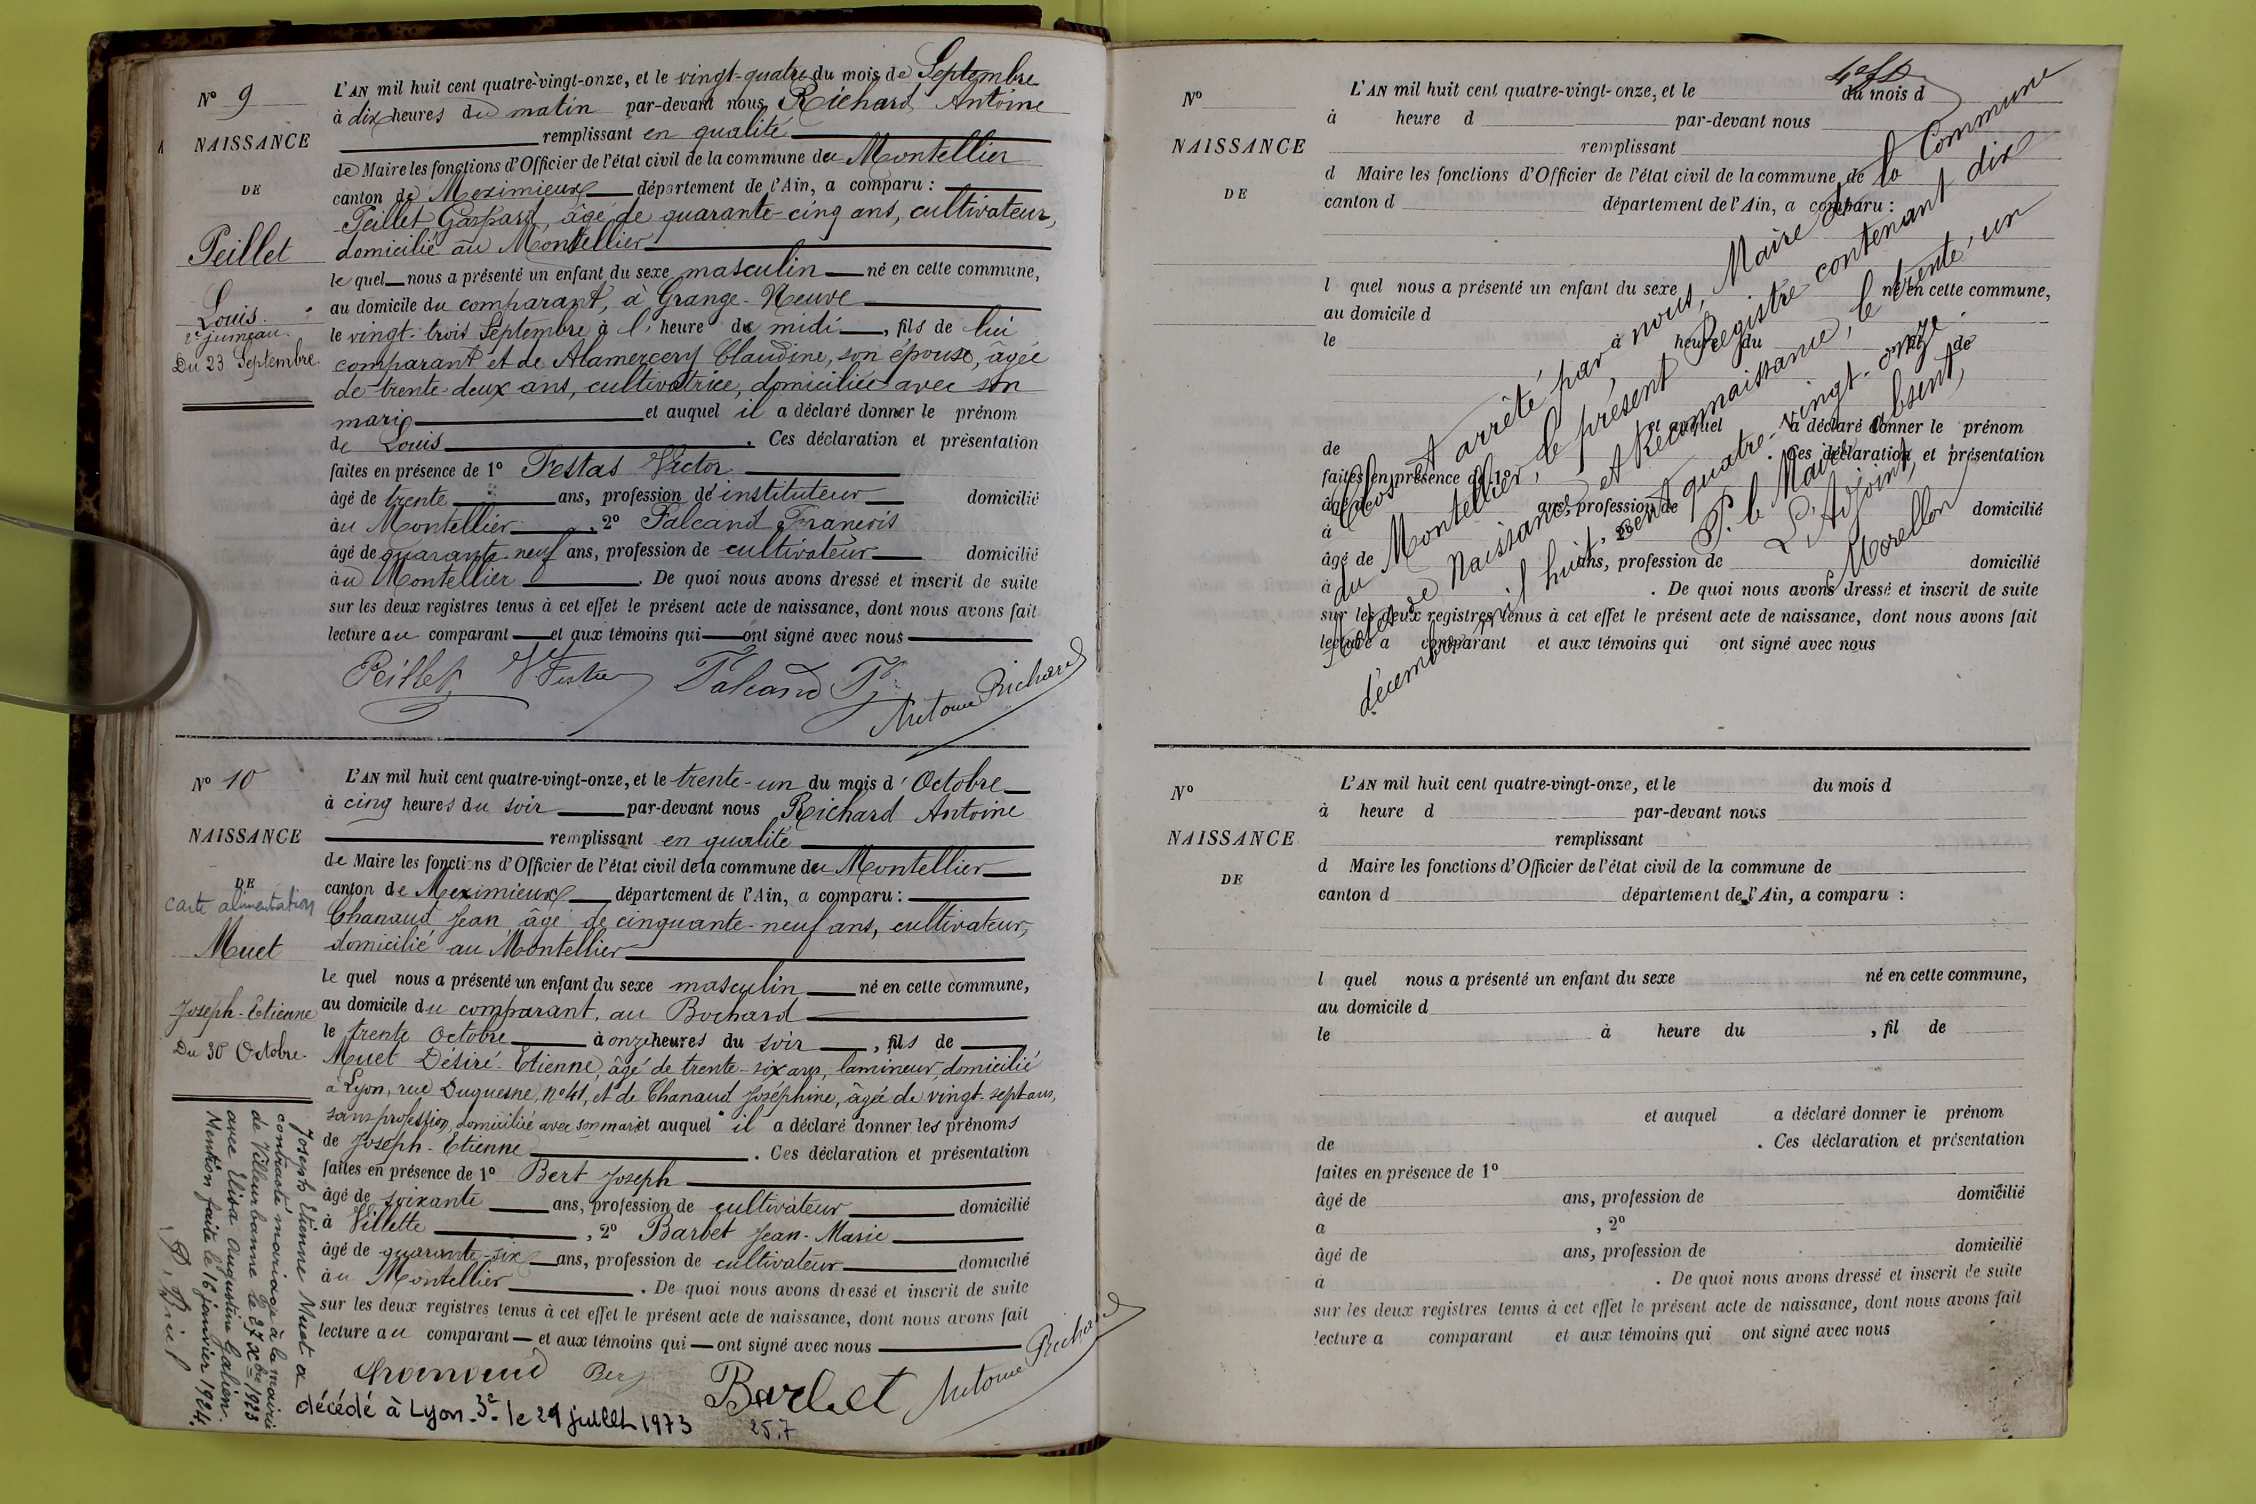 N° 9
NAISSANCE
DE
Peillet
Louis.
2e jumeau.
Du 23 Septembre.
L'AN mil huit cent quatre-vingt-onze, et le vingt-quatre du mois de Septembre
à dix heures du matin par-devant nous Richard Antoine
remplissant en qualité
de Maire les fonctions d'Officier de l'état civil de la commune du Montellier
canton de Meximieux département de l'Ain, a comparu :
Peillet Gaspard, âgé de quarante-cinq ans, cultivateur,
domicilié au Montellier
le quel nous a présenté un enfant du sexe masculin né en cette commune,
au domicile du comparant, à Grange-Neuve
le vingt-trois Septembre à l' heure de midi, fils de lui
comparant et de Alamercery Claudine, son épouse, âgée
de trente-deux ans, cultivatrice, domiciliée avec son
mari et auquel il a déclaré donner le prénom
de Louis. Ces déclaration et présentation
faites en présence de 1° Festas Victor
âgé de trente ans, profession de instituteur domicilié
au Montellier, 2° Falcand Francois
âgé de quarante-neuf ans, profession de cultivateur domicilié
au Montellier. De quoi nous avons dressé et inscrit de suite
sur les deux registres tenus à cet effet le présent acte de naissance, dont nous avons fait
lecture au comparant et aux témoins qui ont signé avec nous
Peillet Falcand Antoine Richard
N° 10
NAISSANCE
DE
Carte alimentation
Muet
Joseph-Etienne
Du 30 Octobre.
L'AN mil huit cent quatre-vingt-onze, et le trente-un du mois d'Octobre
à cinq heures du soir par-devant nous Richard Antoine
remplissant en qualité
de Maire les fonctions d'Officier de l'état civil de la commune du Montellier
canton de Meximieux département de l'Ain, a comparu :
Chanaud Jean, âgé de cinquante-neuf ans, cultivateur,
domicilié au Montellier
le quel nous a présenté un enfant du sexe masculin né en cette commune,
au domicile du comparant, au Bochard
le trente Octobre à onze heures du soir, fils de
Muet Désiré-Etienne, âgé de trente-six ans, lamineur, domicilié
à Lyon, rue Duquesne, n° 41, et de Chanaud Joséphine, âgée de vingt-sept ans,
sans profession, domiciliée avec son mari et auquel il a déclaré donner les prénoms
de Joseph-Etienne. Ces déclaration et présentation
faites en présence de 1° Bert Joseph
âgé de soixante ans, profession de cultivateur domicilié
à Villette, 2° Barbet Jean-Marie
âgé de quarante-six ans, profession de cultivateur domicilié
au Montellier. De quoi nous avons dressé et inscrit de suite
sur les deux registres tenus à cet effet le présent acte de naissance, dont nous avons fait
lecture au comparant et aux témoins qui ont signé avec nous
Chanaud Bert Barbet Antoine Richard
Joseph Etienne Muet a
contracté mariage à la mairie
de Villeurbanne le 27 Xbre 1923
avec Elisa Augustine Galien.
Mention faite le 16 janvier 1924.
décédé à Lyon-3e- le 21 juillet 1973
25.7
N°
NAISSANCE
DE
L'AN mil huit cent quatre-vingt-onze, et le du mois d
à heure d par-devant nous
remplissant
d Maire les fonctions d'Officier de l'état civil de la commune de
canton d département de l'Ain, a comparu :
l quel nous a présenté un enfant du sexe né en cette commune,
au domicile d
le à heure du , fil de
et auquel a déclaré donner le prénom
de . Ces déclaration et présentation
faites en présence de 1°
âgé de ans, profession de domicilié
à , 2°
âgé de ans, profession de domicilié
à . De quoi nous avons dressé et inscrit de suite
sur les deux registres tenus à cet effet le présent acte de naissance, dont nous avons fait
lecture a comparant et aux témoins qui ont signé avec nous
Clos et arrêté par nous, Maire de la Commune
du Montellier, le présent Registre contenant dix
Actes de Naissances et Reconnaissance, le trente-un
décembre mil huit cent quatre-vingt-onze.
P. le Maire absent,
L'Adjoint,
Morellon
N°
NAISSANCE
DE
L'AN mil huit cent quatre-vingt-onze, et le du mois d
à heure d par-devant nous
remplissant
d Maire les fonctions d'Officier de l'état civil de la commune de
canton d département de l'Ain, a comparu :
l quel nous a présenté un enfant du sexe né en cette commune,
au domicile d
le à heure du , fil de
et auquel a déclaré donner le prénom
de . Ces déclaration et présentation
faites en présence de 1°
âgé de ans, profession de domicilié
a , 2°
âgé de ans, profession de domicilié
à . De quoi nous avons dressé et inscrit de suite
sur les deux registres tenus à cet effet le présent acte de naissance, dont nous avons fait
lecture a comparant et aux témoins qui ont signé avec nous